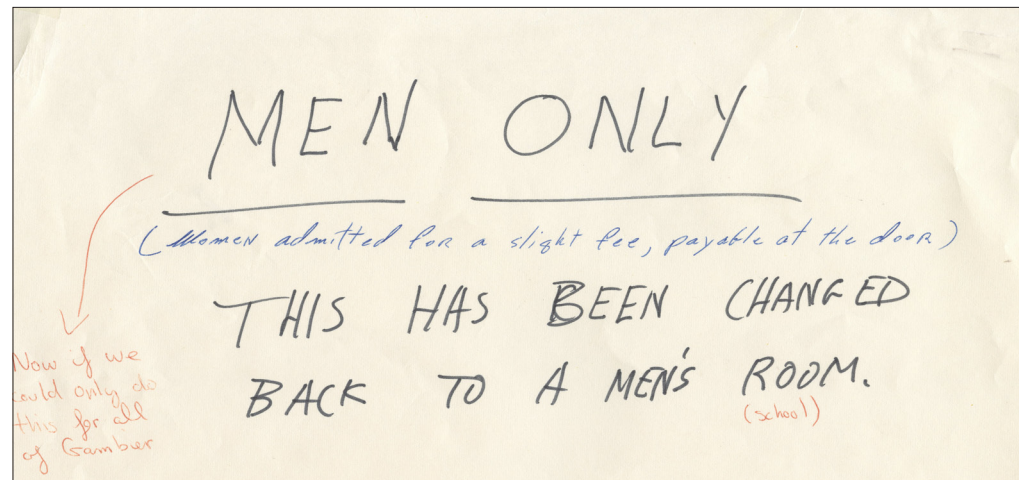 MEN ONLY
(Women admitted for a slight fee, payable at the door)
THIS HAS BEEN CHANGED
BACK TO A MEN'S ROOM.
(school)
Now if we
could only do
this for all
of Gambier